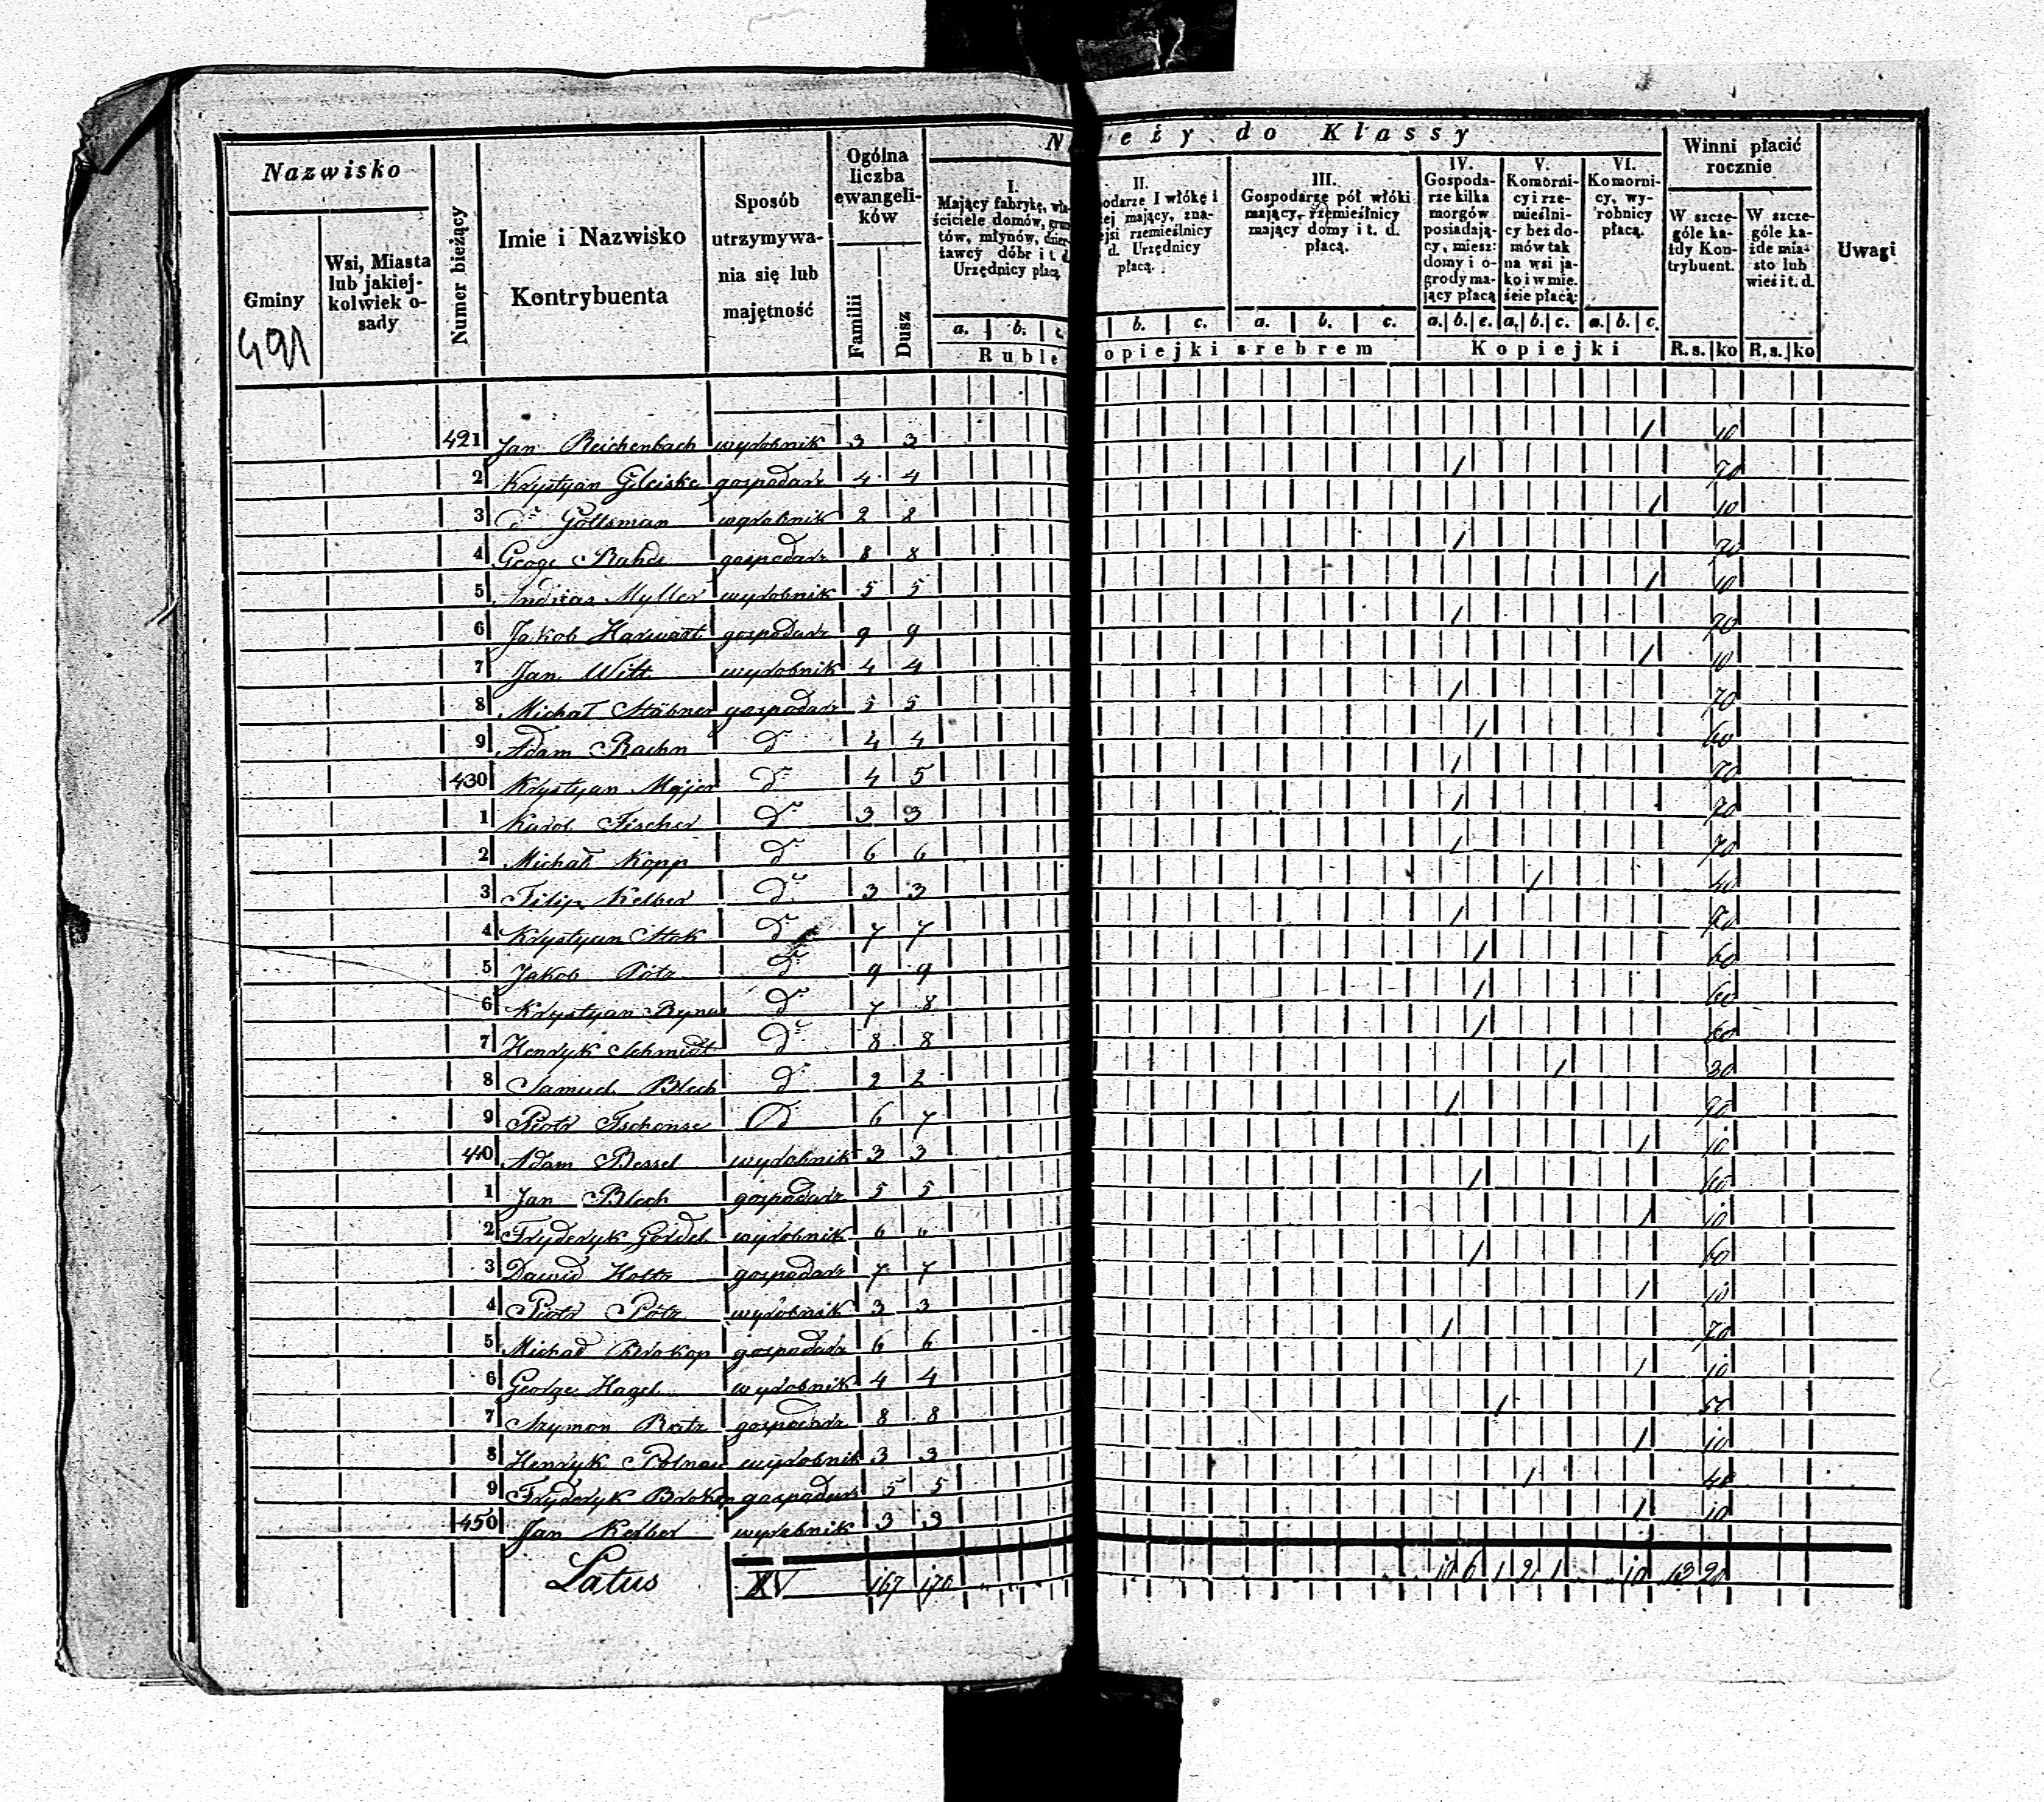 Nazwisko
Gminy
491
Wsi, Miasta lub jakiej-kolwiek o-sady
Numer bieżący
Imie i Nazwisko Kontrybuenta
Sposób utrzymywa-nia się lub majętność
Ogólna liczba ewangeli-ków
Familii
Dusz
N eży do Klassy
I. Mający fabrykę, wła-ściciele domów, grun tów, młynów, dzier tawcy dóbr i t. d. Urzędnicy płacą
II. odarze I włókę i ej mający, zna- ejsi rzemieślnicy d. Urzędnicy płacą.
III. Gospodarze pół włóki mający, rzemieślnicy mający domy i t. d. płacą.
IV. Gospoda-rze kilka morgów posiadają-cy, miesz: domy i o-grody ma-jący płacą
V. Komorni-cy i rze-mieślni-cy bez do-mów tak na wsi ja-ko i w mie-ście płacą:
VI. Komorni-cy, wy-robnicy płacą.
Winni płacić rocznie
W szcze-góle ka-żdy Kon-trybuent.
W szcze-góle ka-żde mia-sto lub wieś i t. d.
Uwagi
a. b. c. b. c. a. b. c. a. b. c. a. b. c. a. b. c.
Ruble opiejki srebrem Kopiejki R. s. ko R. s. ko
421 Jan Reichenbach wyrobnik 3 3 1 10
2 Krystyan Gleiske gospodarz 4 4 1 70
3 dto Goltsman wyrobnik 2 8 1 10
4 George Rahde gospodarz 8 8 1 70
5 Andreas Myller wyrobnik 5 5 1 10
6 Jakob Harwart gospodarz 9 9 1 70
7 Jan Witt wyrobnik 4 4 1 10
8 Michał Stäbner gospodarz 5 5 1 70
9 Adam Raehn d 4 4 1 60
430 Krystyan Majer d 4 5 1 70
1 Karol Fischer d 3 3 1 70
2 Michał Kopp d 6 6 1 70
3 Filip Kelber d 3 3 1 40
4 Krystyan Stok d 7 7 1 70
5 Jakob Pötz d 9 9 1 60
6 Krystyan d 7 8 1 60
7 Henryk Schmidt d 8 8 1 60
8 Samuel Blech d 2 2 1 30
9 Piotr d 6 7 1 70
440 Adam Bessel wyrobnik 3 3 1 10
1 Jan Blech gospodarz 5 5 1 60
2 Fryderyk Gördel wyrobnik 6 6 1 10
3 Dawid Holtz gospodarz 7 7 1 60
4 Piotr Pötz wyrobnik 3 3 1 10
5 Michał Brokop gospodarz 6 6 1 70
6 George Hagel wyrobnik 4 4 1 10
7 Szymon Ratz gospodarz 8 8 1 50
8 Henryk Polnau wyrobnik 3 3 1 10
9 Fryderyk Brokop gospodarz 5 5 1 40
450 Jan Kerber wyrobnik 3 3 1 10
Latus XV 167 170 10 6 1 2 1 10 13 20